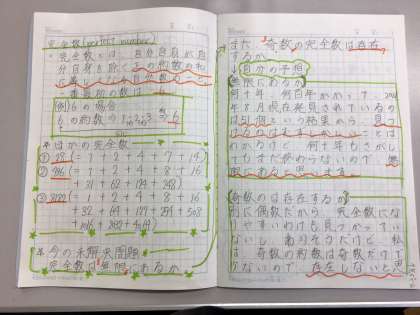 完全数(perfect number)
・完全数とは、自分自身が自
分自身を除く正の約数の和
に等しくなる自分自身の
事 最初の数は6
例）6の場合
6の約数 → 1, 2, 3 → 6
☆ほかの完全数
① 28(= 1 + 2 + 4 + 7 + 14)
② 496(= 1 + 2 + 4 + 8 + 16
+ 31 + 62 + 124 + 248)
③ 8128(= 1 + 2 + 4 + 8 + 16
+ 32 + 64 + 127 + 254 + 508
+ 1016 + 2032 + 4064)
☆今の未解決問題
完全数は無限にあるか
また、奇数の完全数は存在
するか
自分の予想
無限にあるか
何十年、何百年かかって、2018
年8月現在発見されているの
は51個という結果から、見つ
けるのはむずかしいことは
わかるけど、何十年もさがし
てもまだ終わらないので、無
限にあると思います。
奇数のは存在するか
別に偶数だから、完全数にな
りやすいわけも見つかってい
ないし、ありそうだけど、私
は、奇数の約数は奇数だけで
少ないので、存在しないと思
います。